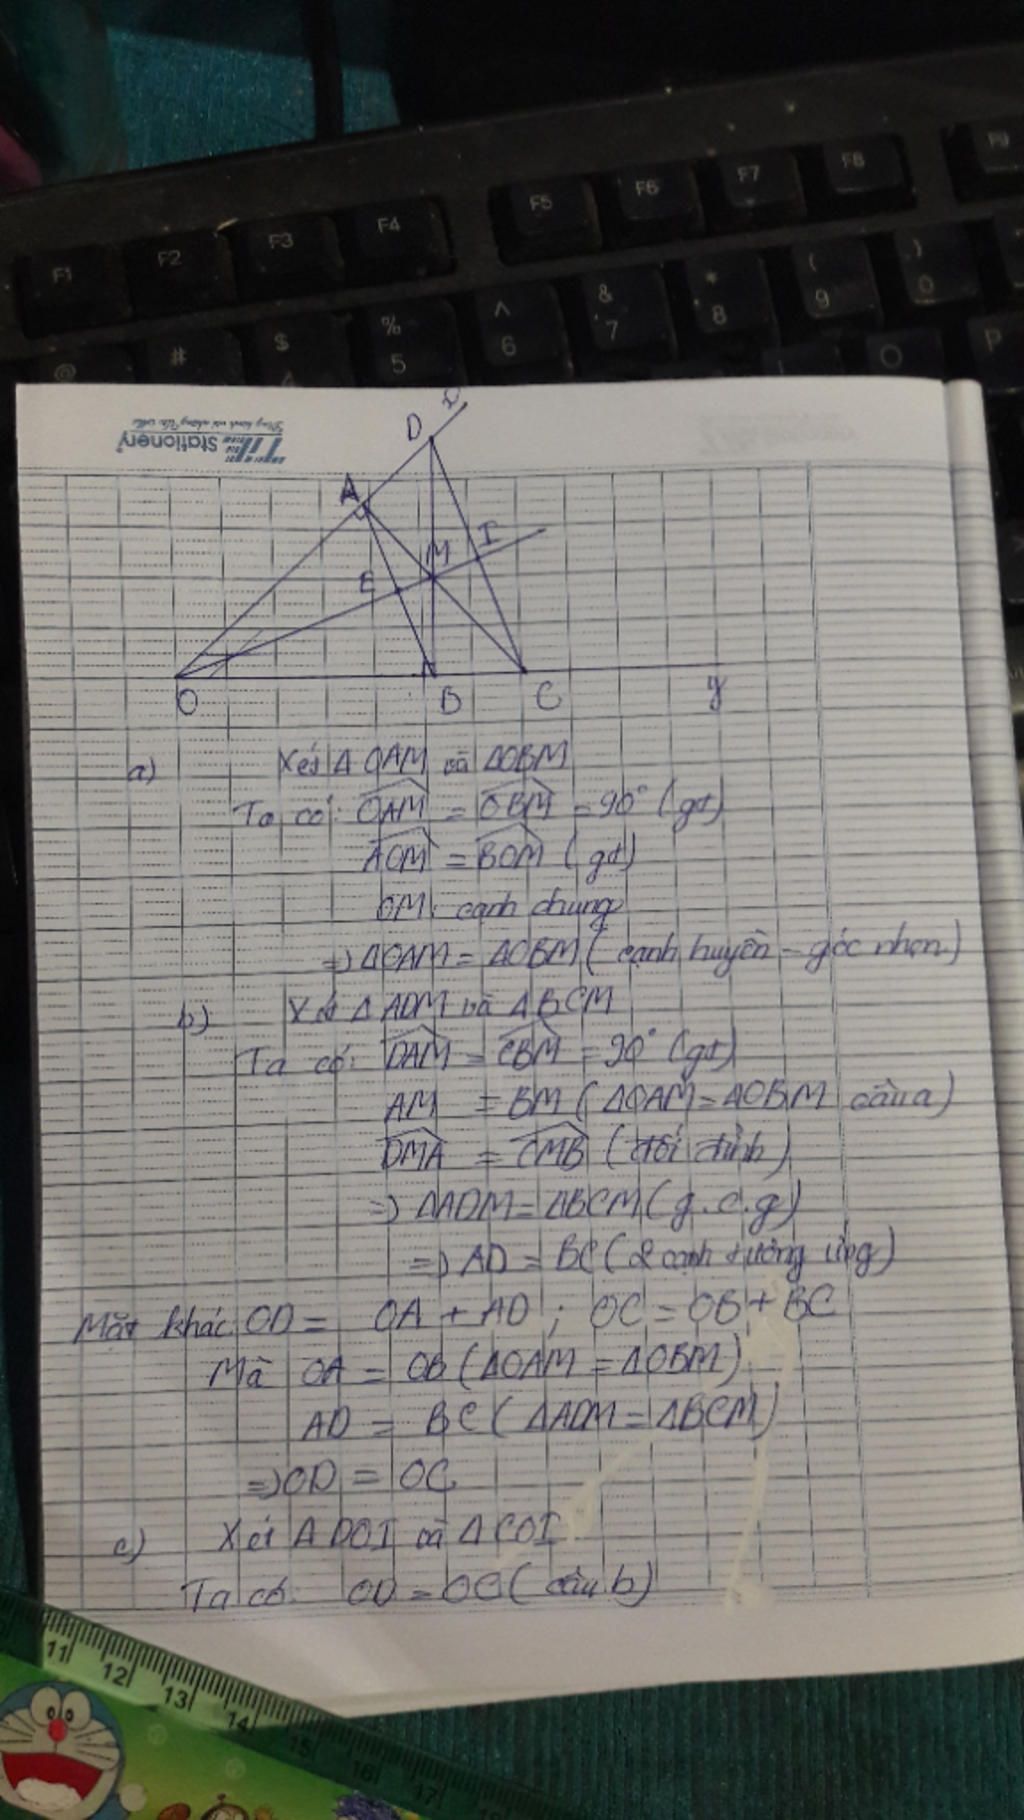 F1 F2 F3 F4 F5 F6 F7 F8 F9
@ # $ % 5 ^ 6 & 7 * 8 ( 9 ) 0
O P
Stationery
D x
A
I
M
E
O B C y
a) Xét Δ OAM và ΔOBM
Ta có: OAM = OBM = 90° (gt)
AOM = BOM (gt)
OM: cạnh chung
=> ΔOAM = ΔOBM (cạnh huyền - góc nhọn)
b) Xét Δ ADM và Δ BCM
Ta có: DAM = CBM = 90° (gt)
AM = BM (ΔOAM = ΔOBM câu a)
DMA = CMB (đối đỉnh)
=> ΔADM = ΔBCM (g.c.g)
=> AD = BC (2 cạnh tương ứng)
Mặt khác OD = OA + AD ; OC = OB + BC
Mà OA = OB (ΔOAM = ΔOBM)
AD = BC (ΔADM = ΔBCM)
=> OD = OC
c) Xét Δ DOI và Δ COI
Ta có: OD = OC (câu b)
11 12 13 14 15 16 17